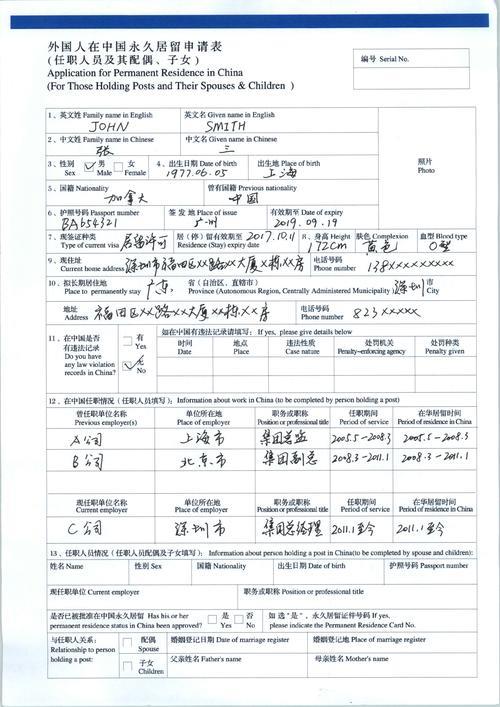 外国人在中国永久居留申请表
(任职人员及其配偶、子女)
Application for Permanent Residence in China
(For Those Holding Posts and Their Spouses & Children )
编号 Serial No.
1、英文姓 Family name in English
JOHN
英文名 Given name in English
SMITH
2、中文姓 Family name in Chinese
张
中文名 Given name in Chinese
三
照片
Photo
3、性别
Sex
男
Male
女
Female
4、出生日期 Date of birth
1977.06.05
出生地 Place of birth
上海
5、国籍 Nationality
加拿大
曾有国籍 Previous nationality
中国
6、护照号码 Passport number
BA654321
签发地 Place of issue
广州
有效期至 Date of expiry
2019.09.19
7、现签证种类
Type of current visa
居留许可
居(停)留有效期至
Residence (Stay) expiry date
2017.10.11
8、身高 Height
172cm
肤色 Complexion
黄色
血型 Blood type
O型
9、现住址
Current home address
深圳市福田区XX路XX大厦X栋XX房
电话号码
Phone number
138XXXXXXXX
10、拟长期居住地
Place to permanently stay
广东
省(自治区、直辖市)
Province (Autonomous Region, Centrally Administered Municipality)
深圳
市
City
地址
Address
福田区XX路XX大厦XX栋XX房
电话号码
Phone number
823XXXXX
11、在中国是否
有违法记录
Do you have
any law violation
records in China?
有
Yes
无
No
如在中国有违法记录请填写: If yes, please give details below
时间
Time
地点
Place
违法性质
Case nature
处罚机关
Penalty-enforcing agency
处罚种类
Penalty given
12、在中国任职情况(任职人员填写): Information about work in China (to be completed by person holding a post)
曾任职单位名称
Previous employer(s)
单位所在地
Place of employer
职务或职称
Position or professional title
任职期间
Period of service
在华居留时间
Period of residence in China
A公司 上海市 集团总监 2005.5-2008.3 2005.5-2008.3
B公司 北京市 集团副总 2008.3-2011.1 2008.3-2011.1
现任职单位名称
Current employer
单位所在地
Place of employer
职务或职称
Position or professional title
任职期间
Period of service
在华居留时间
Period of residence in China
C公司 深圳市 集团总经理 2011.1至今 2011.1至今
13、任职人员情况(任职人员配偶及子女填写): Information about person holding a post in China(to be completed by spouse and children):
姓名 Name
性别 Sex
国籍 Nationality
出生日期 Date of birth
护照号码 Passport number
现任职单位 Current employer
职务或职称 Position or professional title
是否已被批准在中国永久居留 Has his or her
permanent residence status in China been approved?
是
Yes
否
No
如选“是”,永久居留证件号码 If yes,
please indicate the Permanent Residence Card No.
与任职人关系:
Relationship to person
holding a post:
配偶
Spouse
子女
Children
婚姻登记日期 Date of marriage register
婚姻登记地 Place of marriage register
父亲姓名 Father's name
母亲姓名 Mother's name